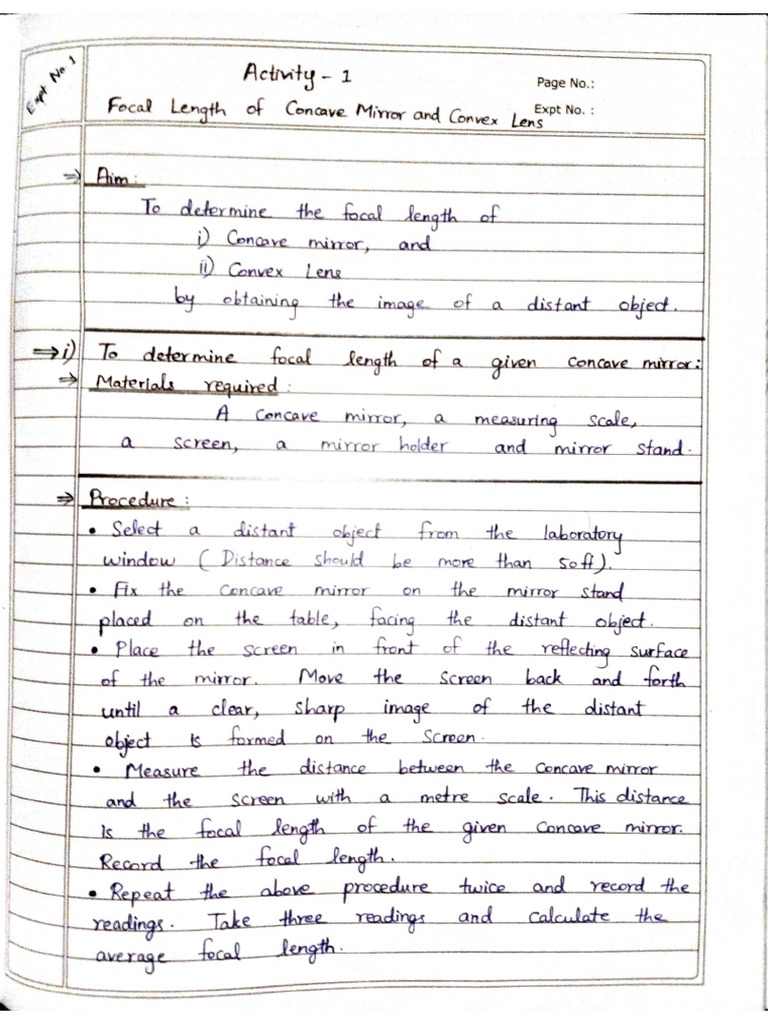 Expt No. 1
Activity - 1
Page No.:
Expt No. :
Focal Length of Concave Mirror and Convex Lens
⇒ Aim:
To determine the focal length of
i) Concave mirror, and
ii) Convex Lens
by obtaining the image of a distant object.
⇒ i) To determine focal length of a given concave mirror:
⇒ Materials required:
A concave mirror, a measuring scale,
a screen, a mirror holder and mirror stand.
⇒ Procedure:
• Select a distant object from the laboratory
window (Distance should be more than 50ff).
• Fix the concave mirror on the mirror stand
placed on the table, facing the distant object.
• Place the screen in front of the reflecting surface
of the mirror. Move the screen back and forth
until a clear, sharp image of the distant
object is formed on the screen.
• Measure the distance between the concave mirror
and the screen with a metre scale. This distance
is the focal length of the given concave mirror.
Record the focal length.
• Repeat the above procedure twice and record the
readings. Take three readings and calculate the
average focal length.